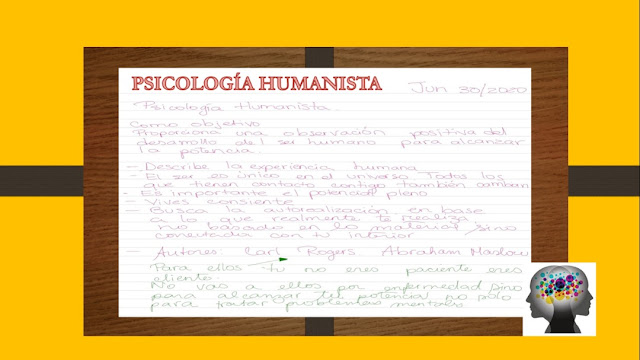 PSICOLOGÍA HUMANISTA
Jun 30/2020
Psicología Humanista.
Como objetivo
Proporciona una observación positiva del
desarrollo del ser humano para alcanzar
la potencia.
- Describe la experiencia humana
- El ser es único en el universo Todos los
que tienen contacto contigo también cambian
- Es importante el potencial pleno
- Vives consiente
- Busca la autorealización en base
a lo que realmente te realiza
no basado en lo material sino
conectado con tu interior
- Autores: Carl Rogers Abraham Maslow
Para ellos Tu no eres paciente eres
cliente.
No vas a ellos por enfermedad sino
para alcanzar tu potencial no solo
para tratar problemas mentales